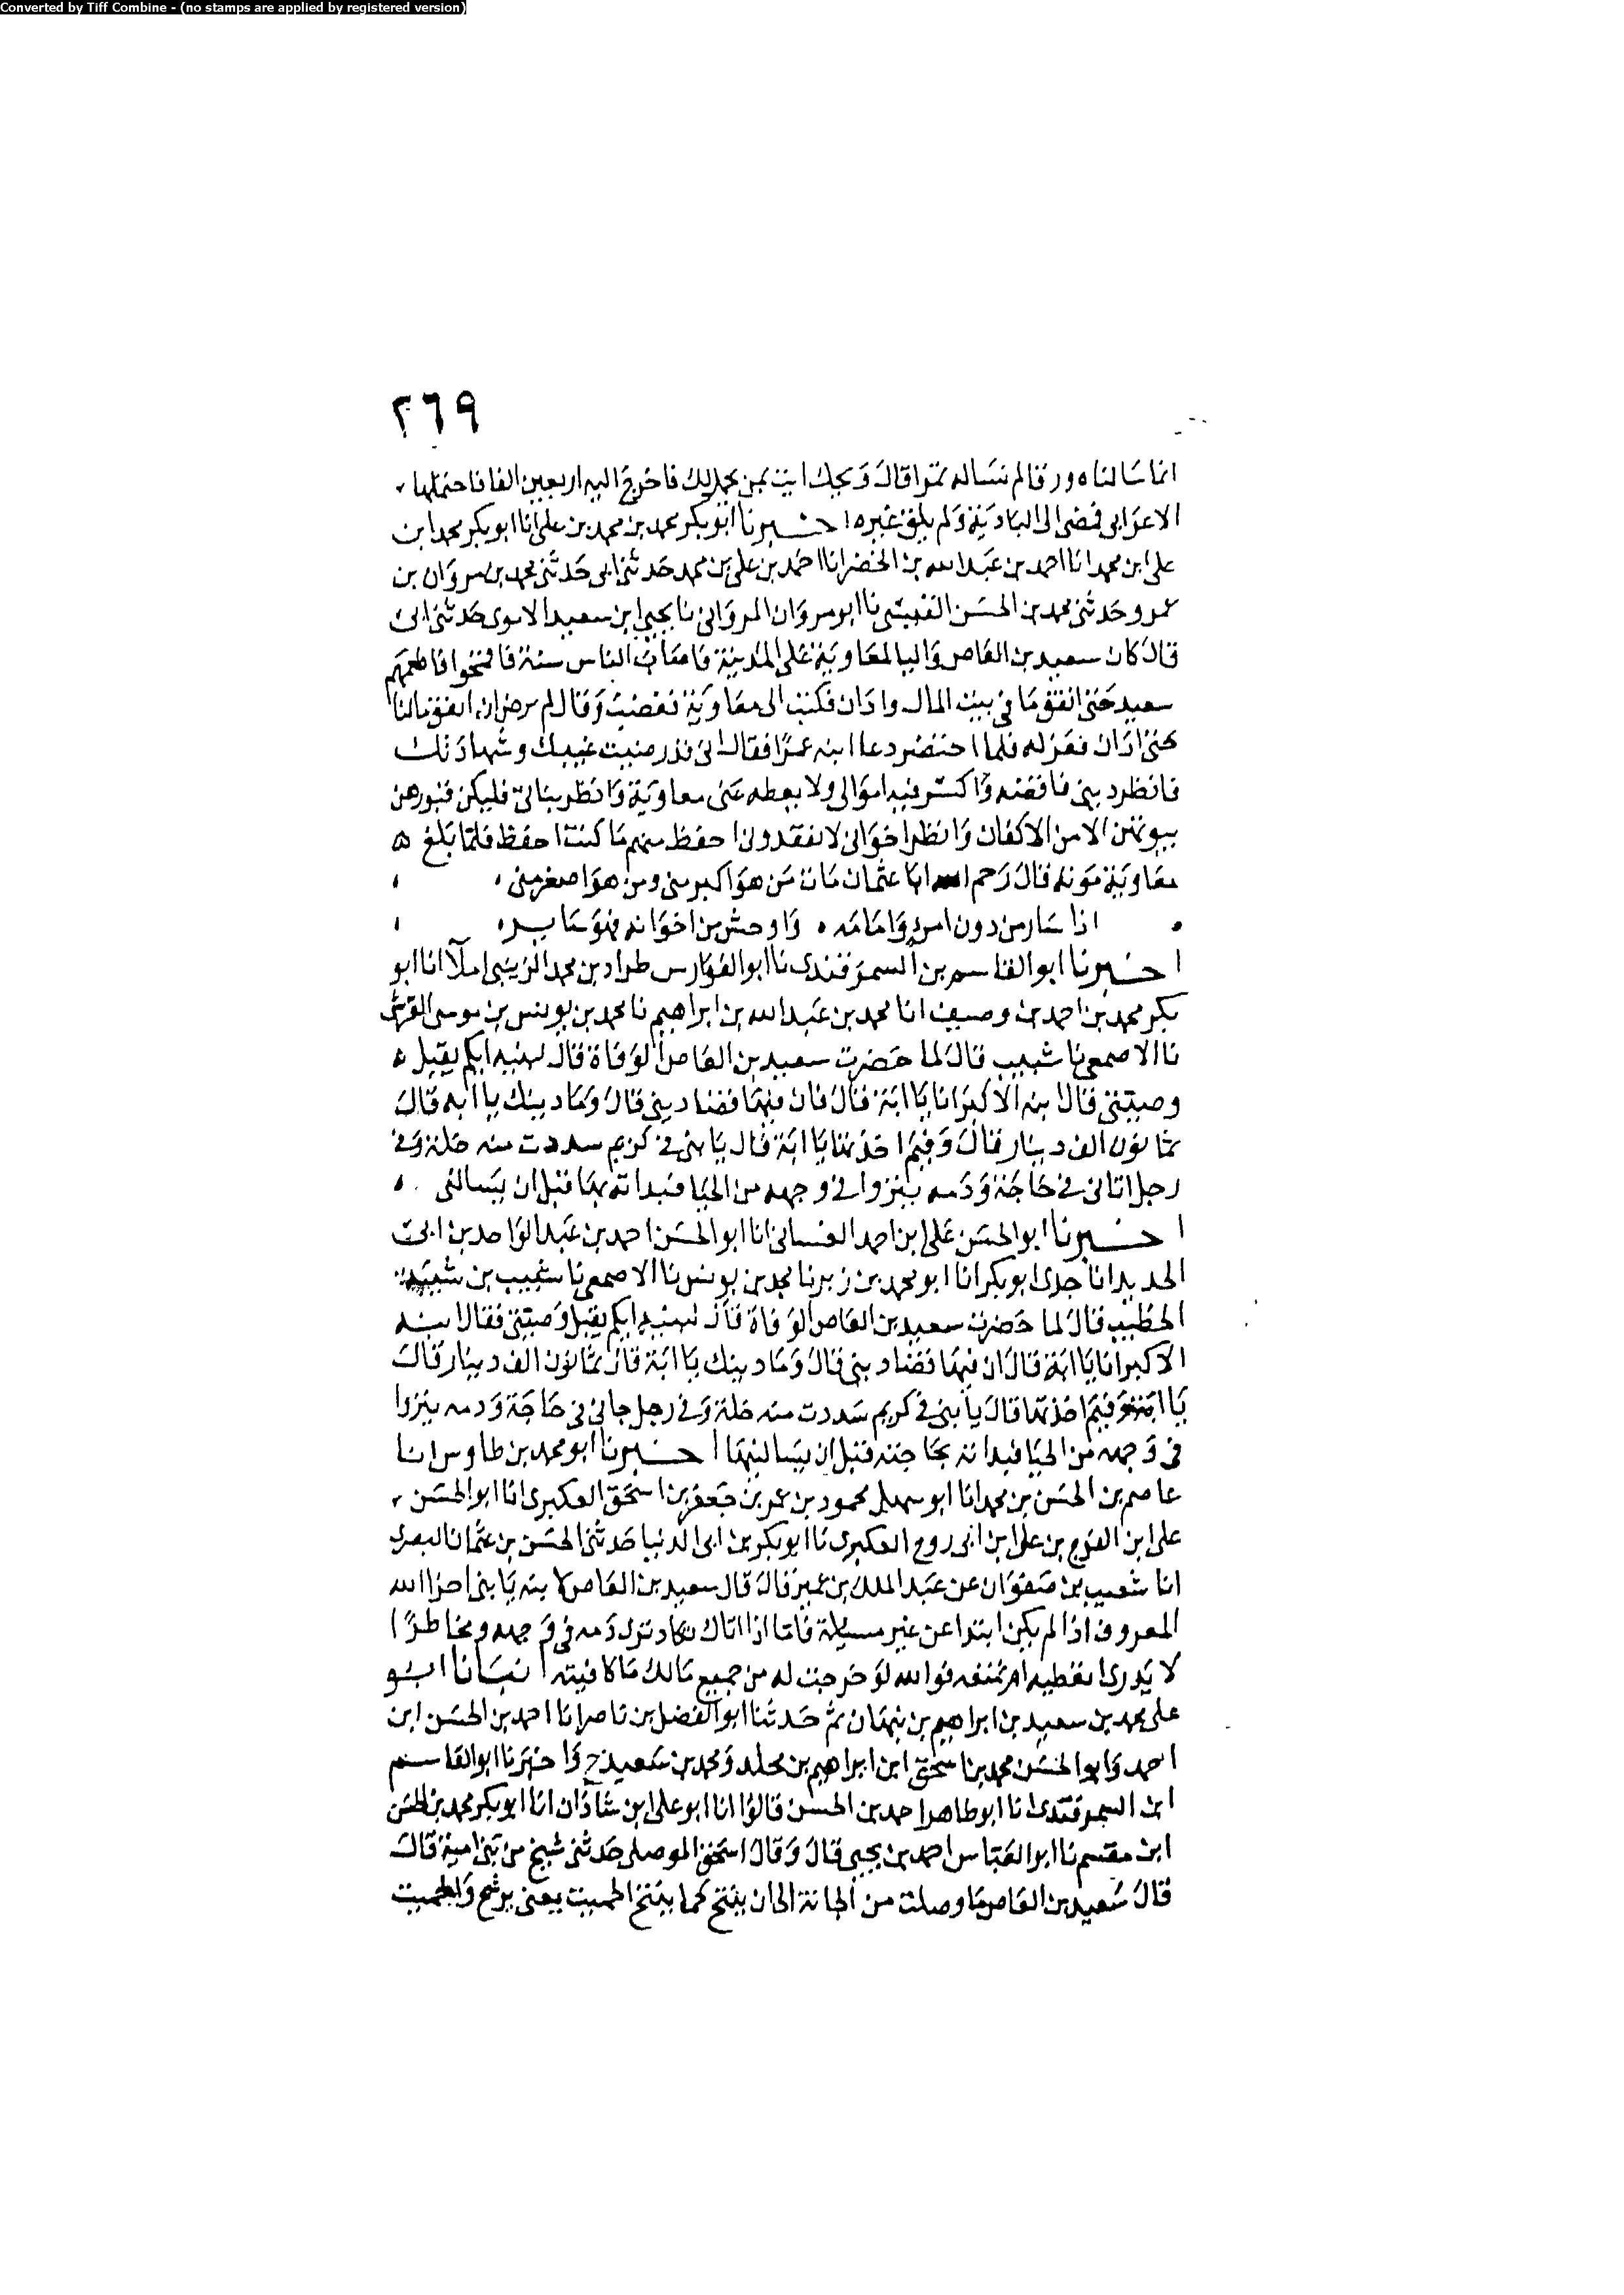 Converted by Tiff Combine - (no stamps are applied by registered version)
٢٦٩
انما سالناه ورقا لم نساله تمرا قال ويحك ايت بمن يحمل لك فاخرج اليه اربعين الفا فاحتملها
الاعرابي فمضى الى البادية ولم يلق غيره اخبرنا ابو بكر محمد بن محمد بن علي انا ابو بكر محمد ابن
علي ابن محمد انا احمد بن عبد الله بن الخضر انا احمد بن علي بن محمد حدثني ابي حدثني محمد بن مروان بن
عمر وحدثني محمد بن الحسن نا ابو مروان المرواني نا يحيى ابن سعيد الاموي حدثني ابي
قال كان سعيد بن العاص واليا لمعاوية على المدينة فاصاب الناس سنة فاطعمهم
سعيد حتى انفق ما في بيت المال وادان فكتب الى معاوية فغضب وقال لم يرض ان انفق مالنا
حتى ادان فعزله فلما احتضر دعا ابنه عمرا فقال اني قد رضيت غيبك وشهادتك
فانظر ديني فاقضه واكسر فيه اموالي ولا يعطه عني معاوية وانظر بناتي فليكن قبورهن
بيوتهن الا من الاكفان وانظر اخواني لا يفقدوني احفظ منهم ما كنت احفظ فلما بلغ
معاوية موته قال رحم الله ابا عثمان مات من هو اكبر مني ومن هو اصغر مني
اذا سار من دون امرؤ وامامه واوحش من اخوانه فهو ساير
اخبرنا ابو القاسم بن السمرقندي نا ابو الفوارس طراد بن محمد الزينبي املا انا ابو
بكر محمد بن احمد بن وصيف انا محمد بن عبد الله بن ابراهيم نا محمد بن يونس بن موسى القرشي
نا الاصمعي نا شبيب قال لما حضرت سعيد بن العاص الوفاة قال لبنيه ايكم يقبل
وصيتي قال ابنه الاكبر انا يا ابة قال فان فيها قضا ديني قال وما دينك يا ابه قال
ثمانون الف دينار قال وفيم اخذتها يا ابة قال يا بني في كريم سددت منه خلة وفي
رجل اتاني في حاجة ودمه ينزوا في وجهه من الحيا فبداته بها قبل ان يسالني
اخبرنا ابو الحسن علي ابن احمد الغساني انا ابو الحسن احمد بن عبد الواحد بن ابي
الحديد انا جدي ابو بكر انا ابو محمد بن زبر نا محمد بن يونس نا الاصمعي نا شبيب بن شيبة
الخطيب قال لما حضرت سعيد بن العاص الوفاة قال لبنيه ايكم يقبل وصيتي فقال ابنه
الاكبر انا يا ابة قال ان فيها قضا ديني قال وما دينك يا ابة قال ثمانون الف دينار قال
يا ابة وفيم اخذتها قال يا بني في كريم سددت منه خلة وفي رجل جاني في حاجة ودمه ينزوا
في وجهه من الحيا فبداته بحاجته قبل ان يسالنيها اخبرنا ابو محمد بن طاوس انا
عاصم بن الحسن بن محمد انا ابو سهل محمود بن عمر بن جعفر بن اسحق العكبري انا ابو الحسن
علي ابن الفرج بن علي ابن ابي روح العكبري نا ابو بكر بن ابي الدنيا حدثني الحسن بن عثمان البصري
انا شعيب بن صفوان عن عبد الملك بن عمير قال قال سعيد بن العاص لابنه يا بني اجزا الله
المعروف اذا لم يكن ابتدا عن غير مسيلة فاما اذا اتاك تكاد ترى دمه في وجهه ومخاطرا
لا يدري اتعطيه ام تمنعه فوالله لو خرجت له من جميع مالك ما كافيته انبانا ابو
علي محمد بن سعيد بن ابراهيم بن نبهان ثم حدثنا ابو الفضل بن ناصر انا احمد بن الحسن ابن
احمد وابو الحسن محمد بن اسحق ابن ابراهيم بن مخلد ومحمد بن سعيد ح واخبرنا ابو القاسم
ابن السمرقندي انا ابو طاهر احمد بن الحسن قالوا انا ابو علي ابن شاذان انا ابو بكر محمد بن الحسن
ابن مقسم نا ابو العباس احمد بن يحيى قال وقال اسحق الموصلي حدثني شيخ من بني امية قال
قال سعيد بن العاص ما وصلت من الجاته الى ان ينتح كما ينتح الحميت يعني يرشح والحميت